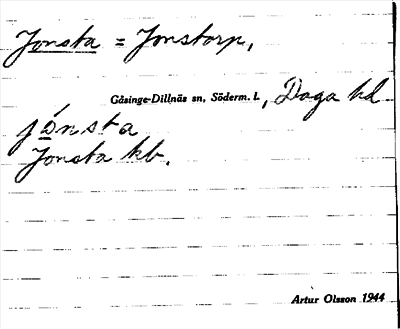 Jonsta = Jonstorp,
Gåsinge-Dillnäs sn, Söderm. l., Daga hd
jónsta
Jonsta kb.
Artur Olsson 1944